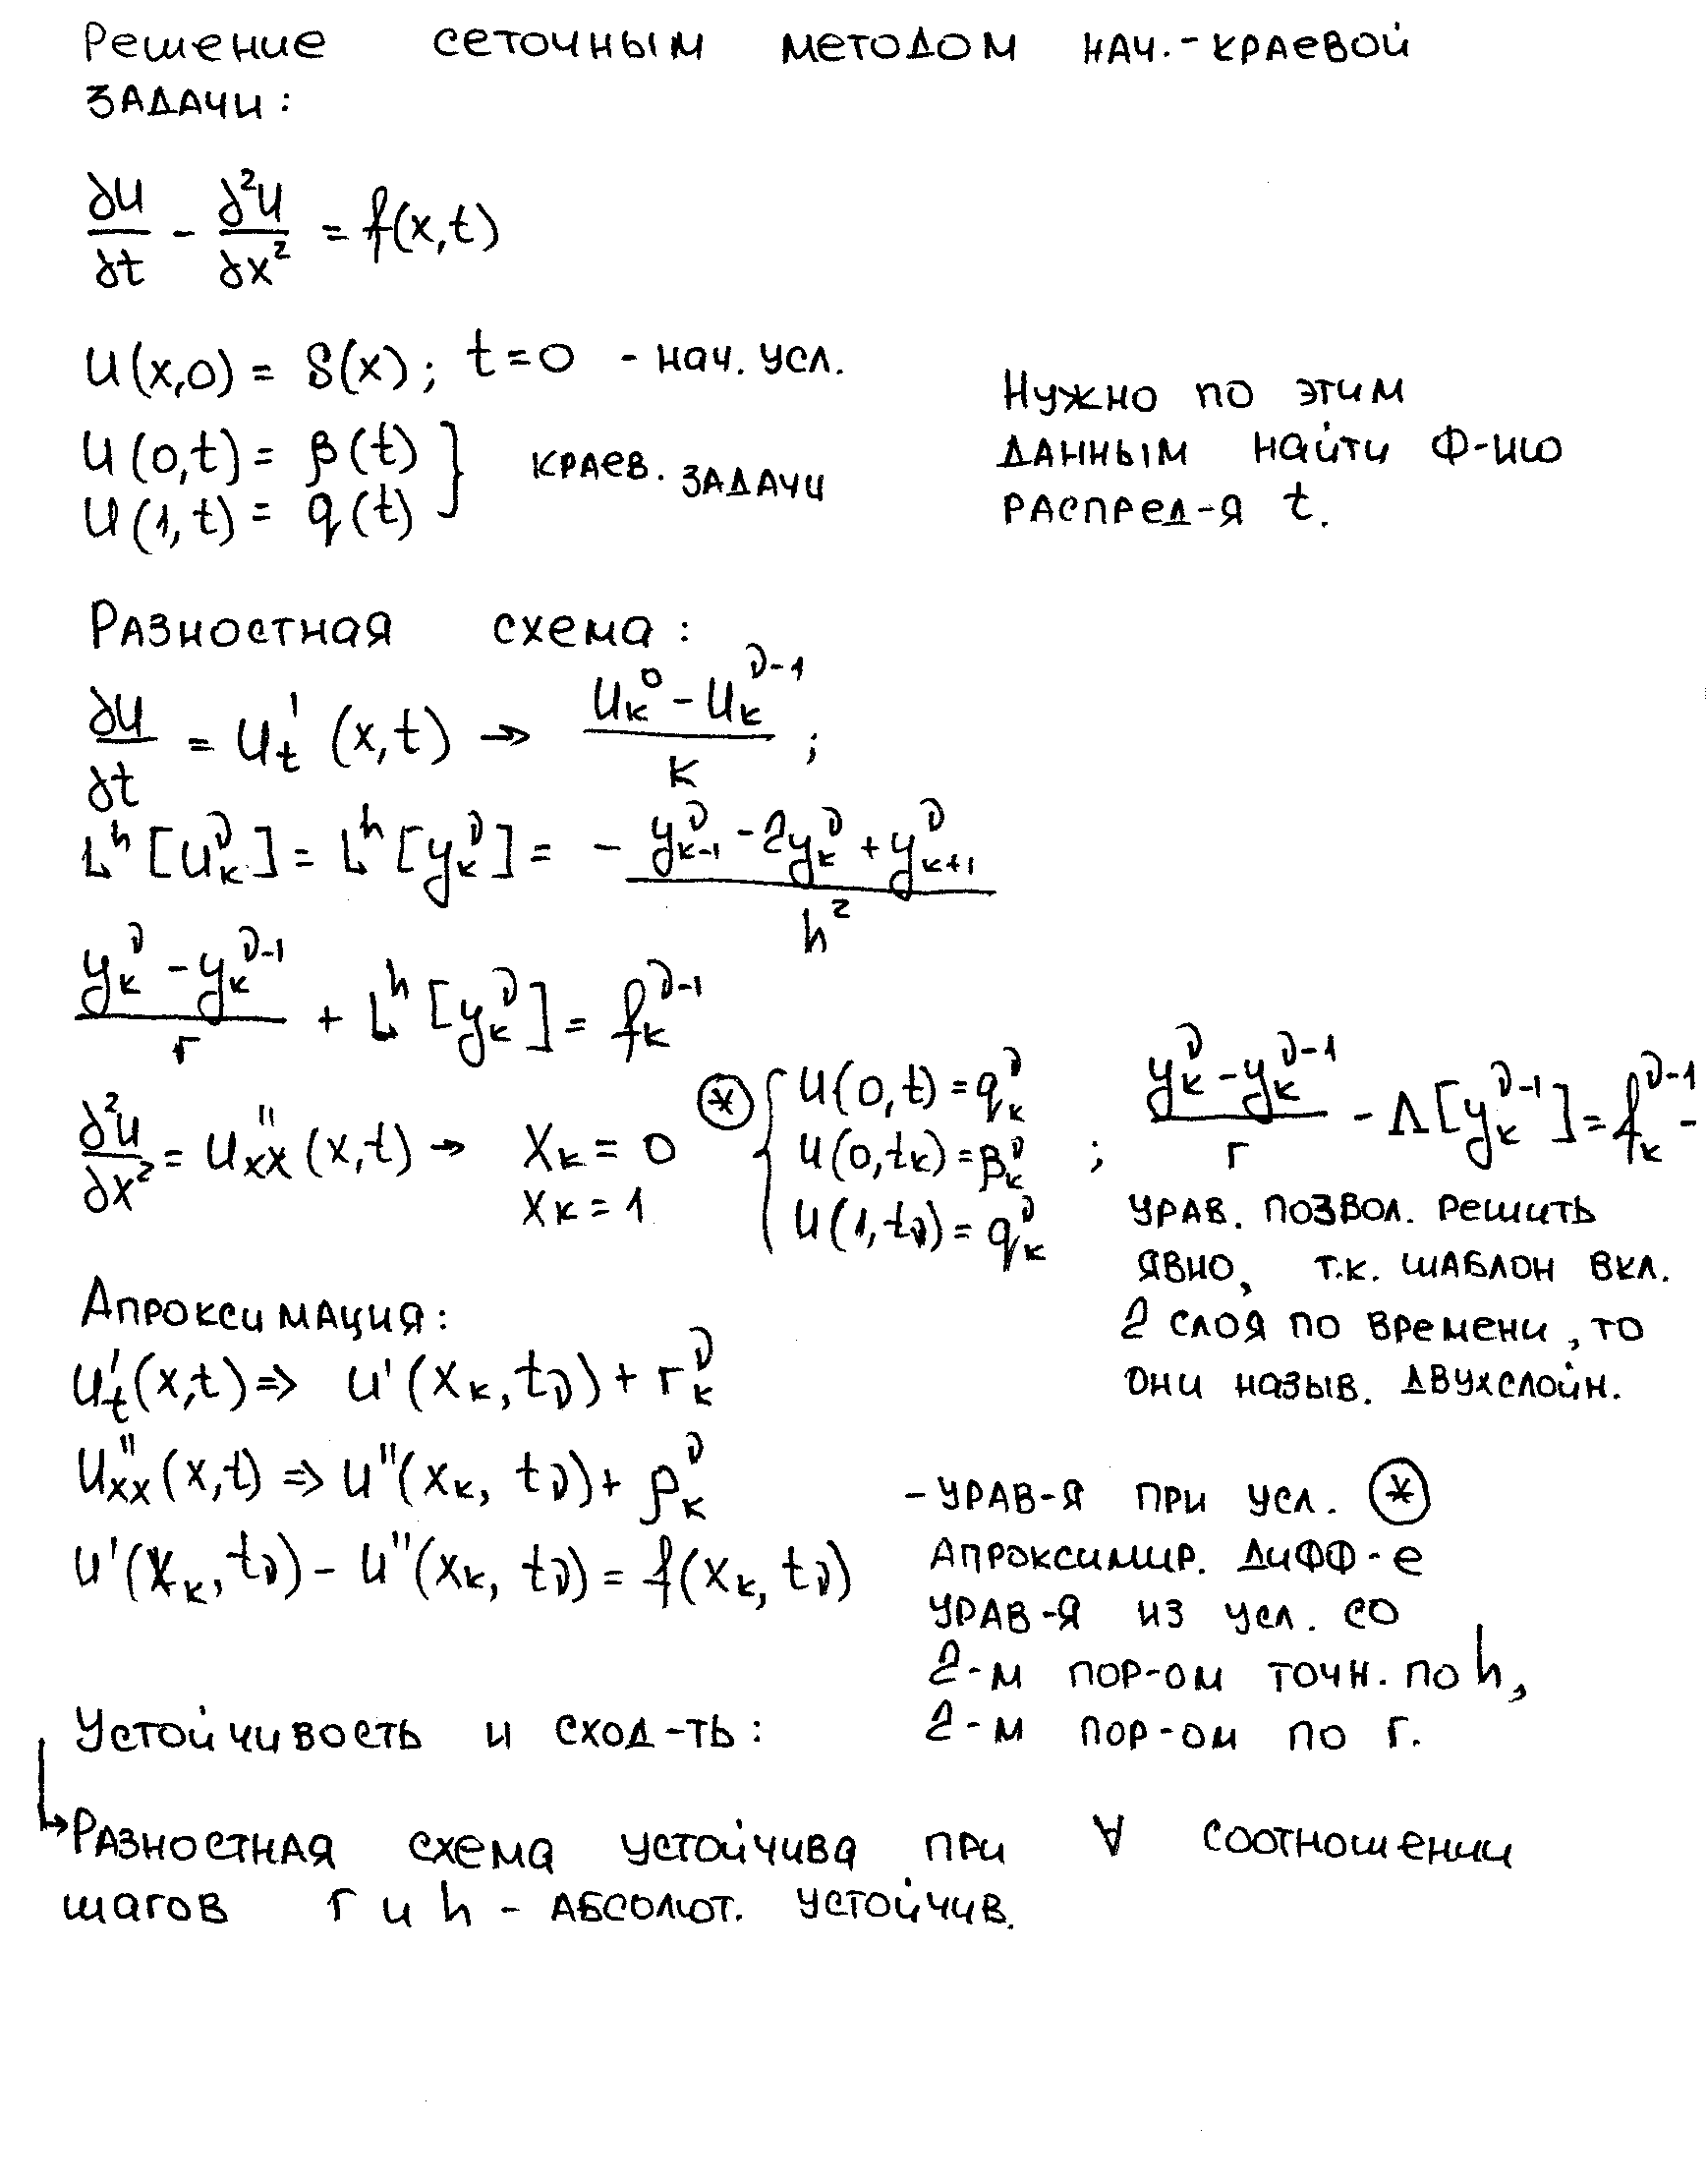 Решение сеточным методом нач.-краевой
задачи:
∂u/∂t - ∂²u/∂x² = f(x,t)
u(x,0) = S(x); t=0 - нач. усл.
u(0,t) = β(t)
u(1,t) = q(t) } краев. задачи
Нужно по этим
данным найти ф-ию
распред-я t.
Разностная схема:
∂u/∂t = u'_t (x,t) → (u_k^0 - u_k^{ν-1})/k ;
L^h [u_k^ν] = L^h [y_k^ν] = - (y_{k-1}^ν - 2y_k^ν + y_{k+1}^ν)/h²
(y_k^ν - y_k^{ν-1})/r + L^h [y_k^ν] = f_k^{ν-1}
∂²u/∂x² = u''_{xx} (x,t) → x_k = 0
x_k = 1
(*) { u(0,t) = q_k^ν
u(0,t_k) = β_k^ν
u(1,t_ν) = q_k^ν
; (y_k^ν - y_k^{ν-1})/r - Λ[y_k^{ν-1}] = f_k^{ν-1} -
урав. позвол. решить
явно, т.к. шаблон вкл.
2 слоя по времени, то
они назыв. двухслойн.
Апроксимация:
u'_t(x,t) ⇒ u'(x_k, t_ν) + r_k^ν
u''_{xx}(x,t) ⇒ u''(x_k, t_ν) + ρ_k^ν
u'(x_k, t_ν) - u''(x_k, t_ν) = f(x_k, t_ν)
- урав-я при усл. (*)
апроксимир. дифф-е
урав-я из усл. со
2-м пор-ом точн. по h,
2-м пор-ом по r.
Устойчивость и сход-ть:
↳ Разностная схема устойчива при ∀ соотношении
шагов r и h - абсолют. устойчив.